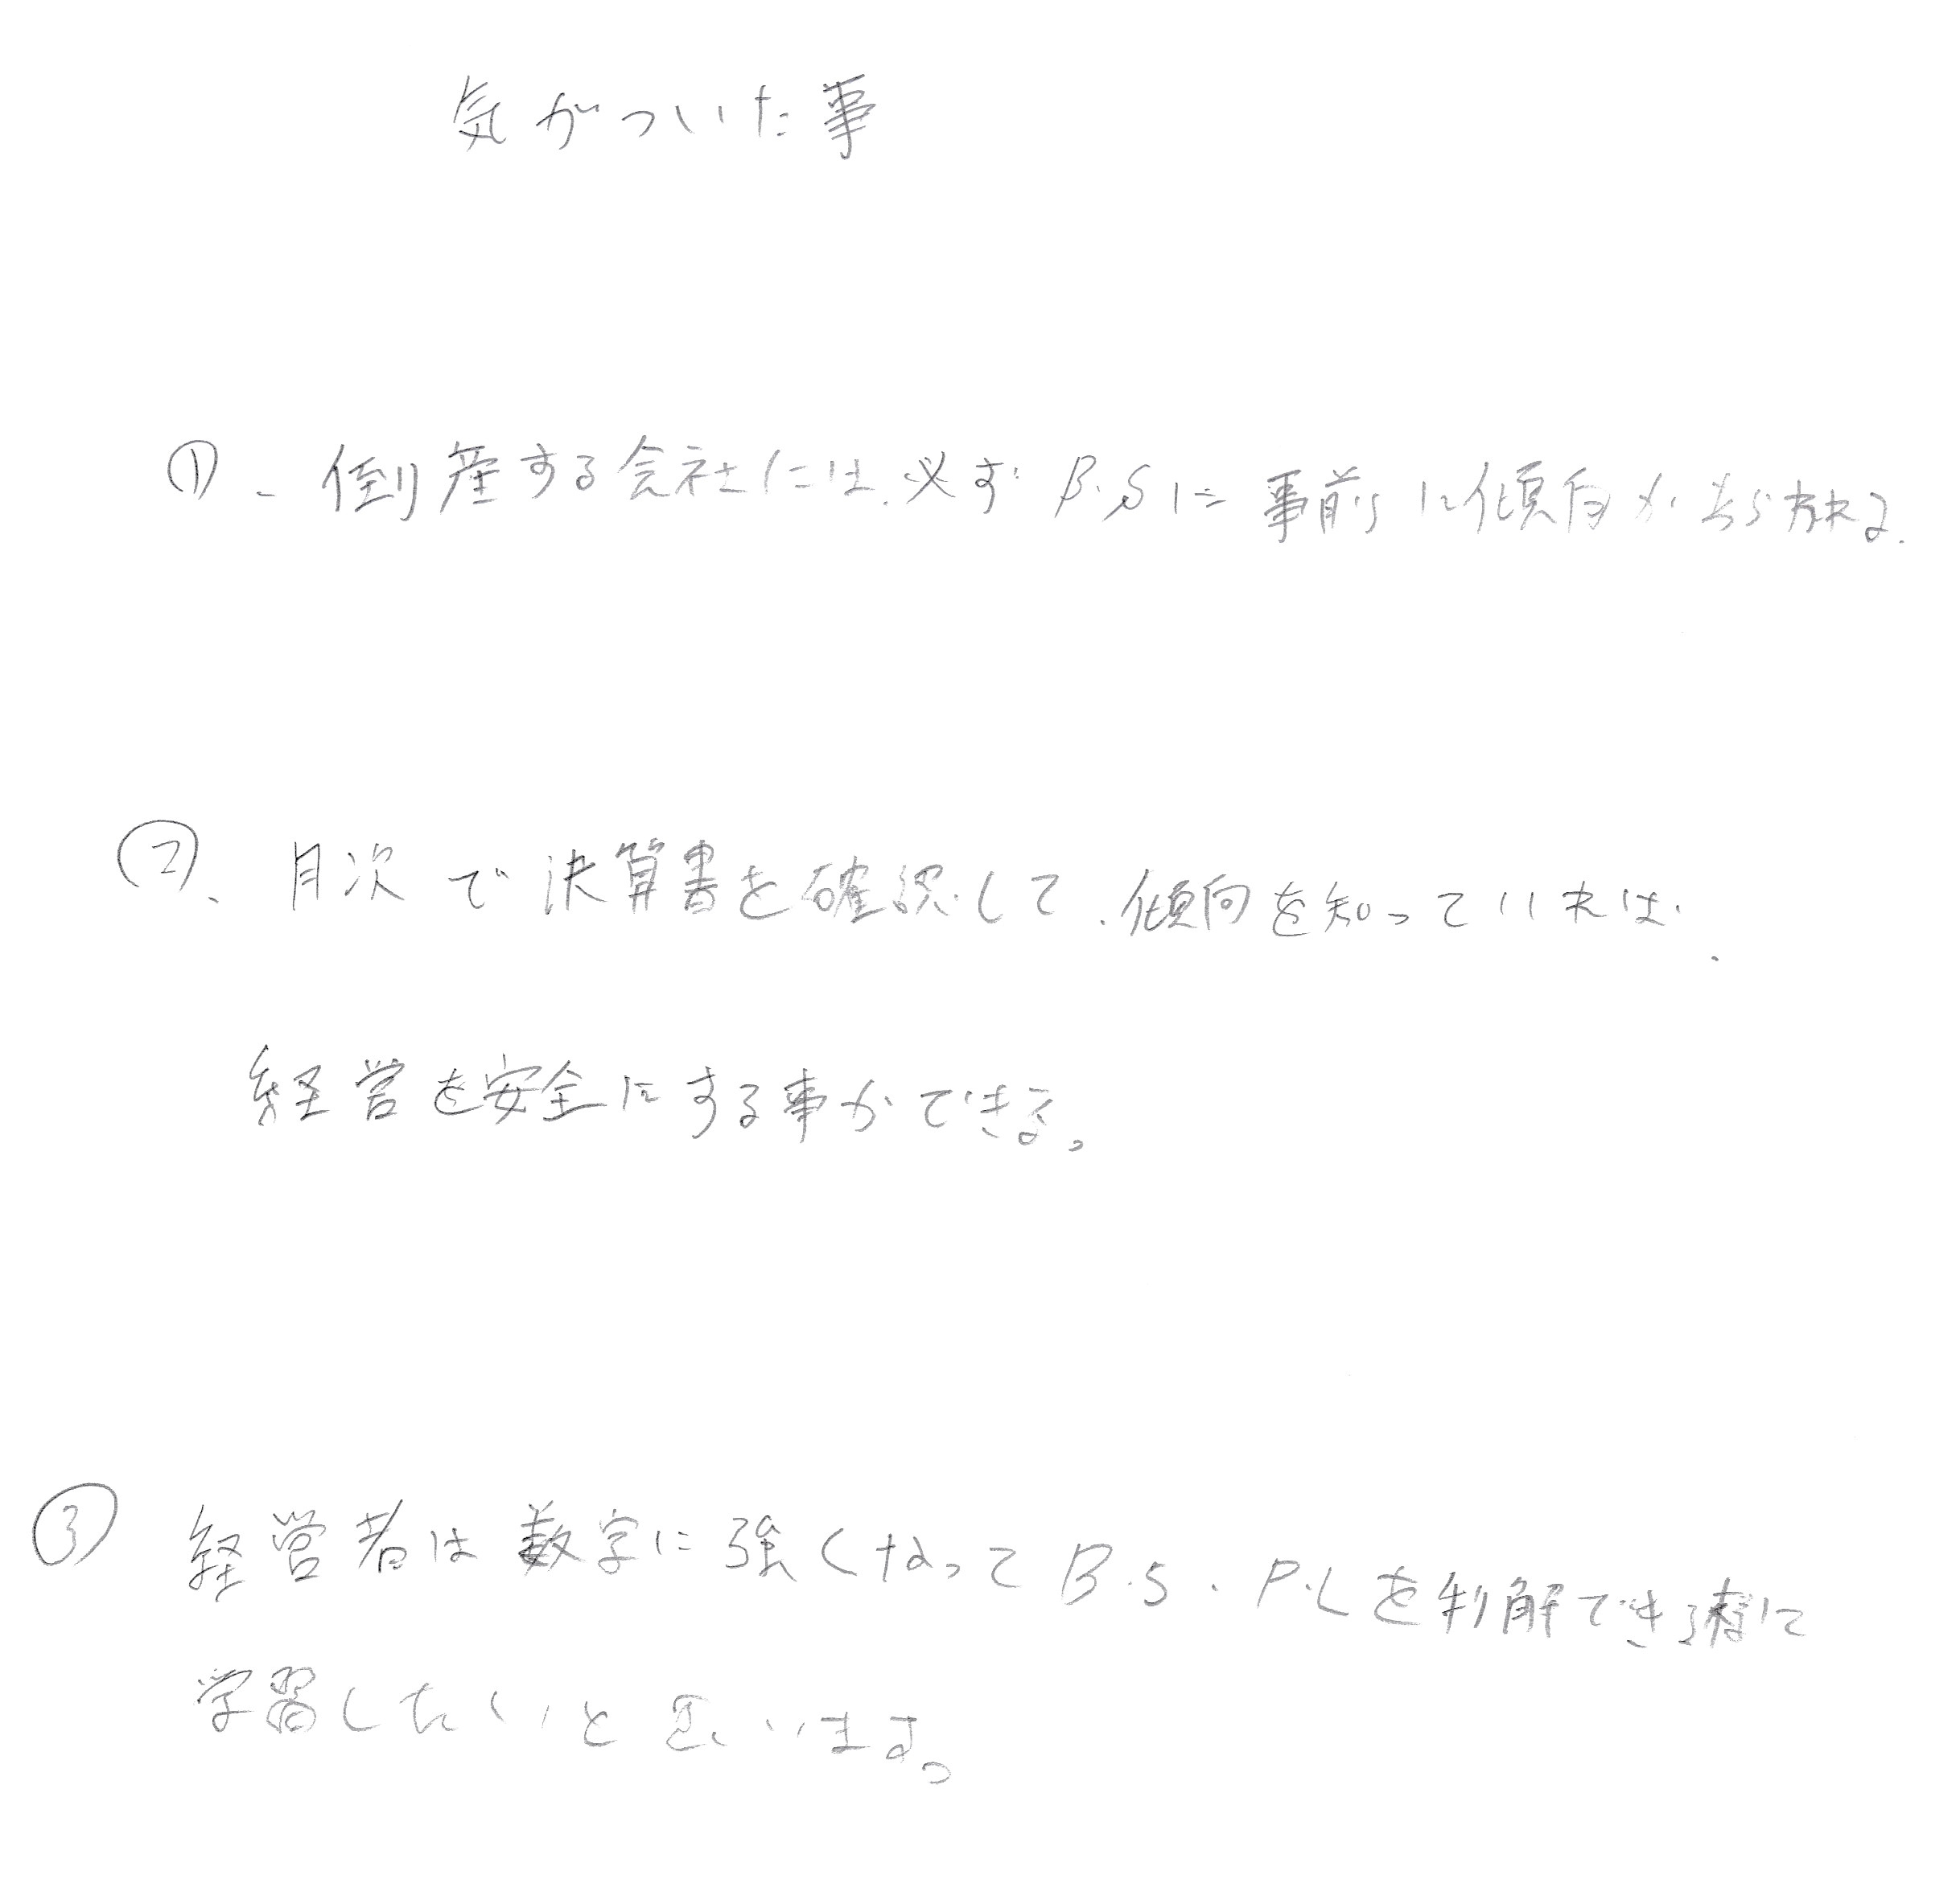 気がついた事
①、倒産する会社には、必ずB.Sに事前に傾向があらわれる.
②、月次で決算書を確認して、傾向を知っていれば、
経営を安全にする事ができる。
③ 経営者は数字に強くなってB.S.P.Lを判解できる様に
学習したいと思います。